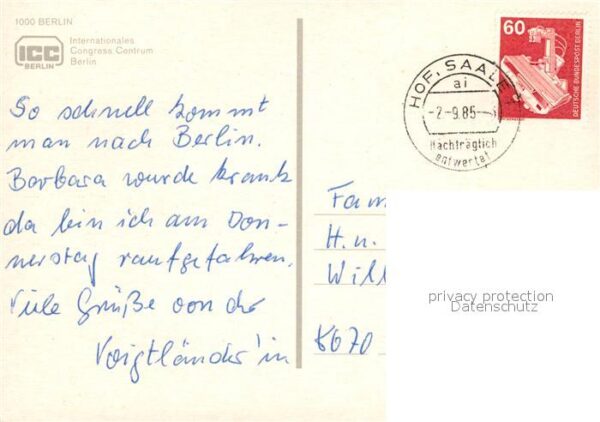 1000 BERLIN
ICC
BERLIN
Internationales
Congress Centrum
Berlin
So schnell kommt
man nach Berlin.
Barbara wurde krank
da bin ich am Don-
nerstag raufgefahren.
Viele Grüße von der
Voigtländer'in
60
DEUTSCHE BUNDESPOST BERLIN
HOF, SAALE
ai
-2.-9.85-
Nachträglich
entwertet
Fam
H. u.
Will
privacy protection
Datenschutz
8670